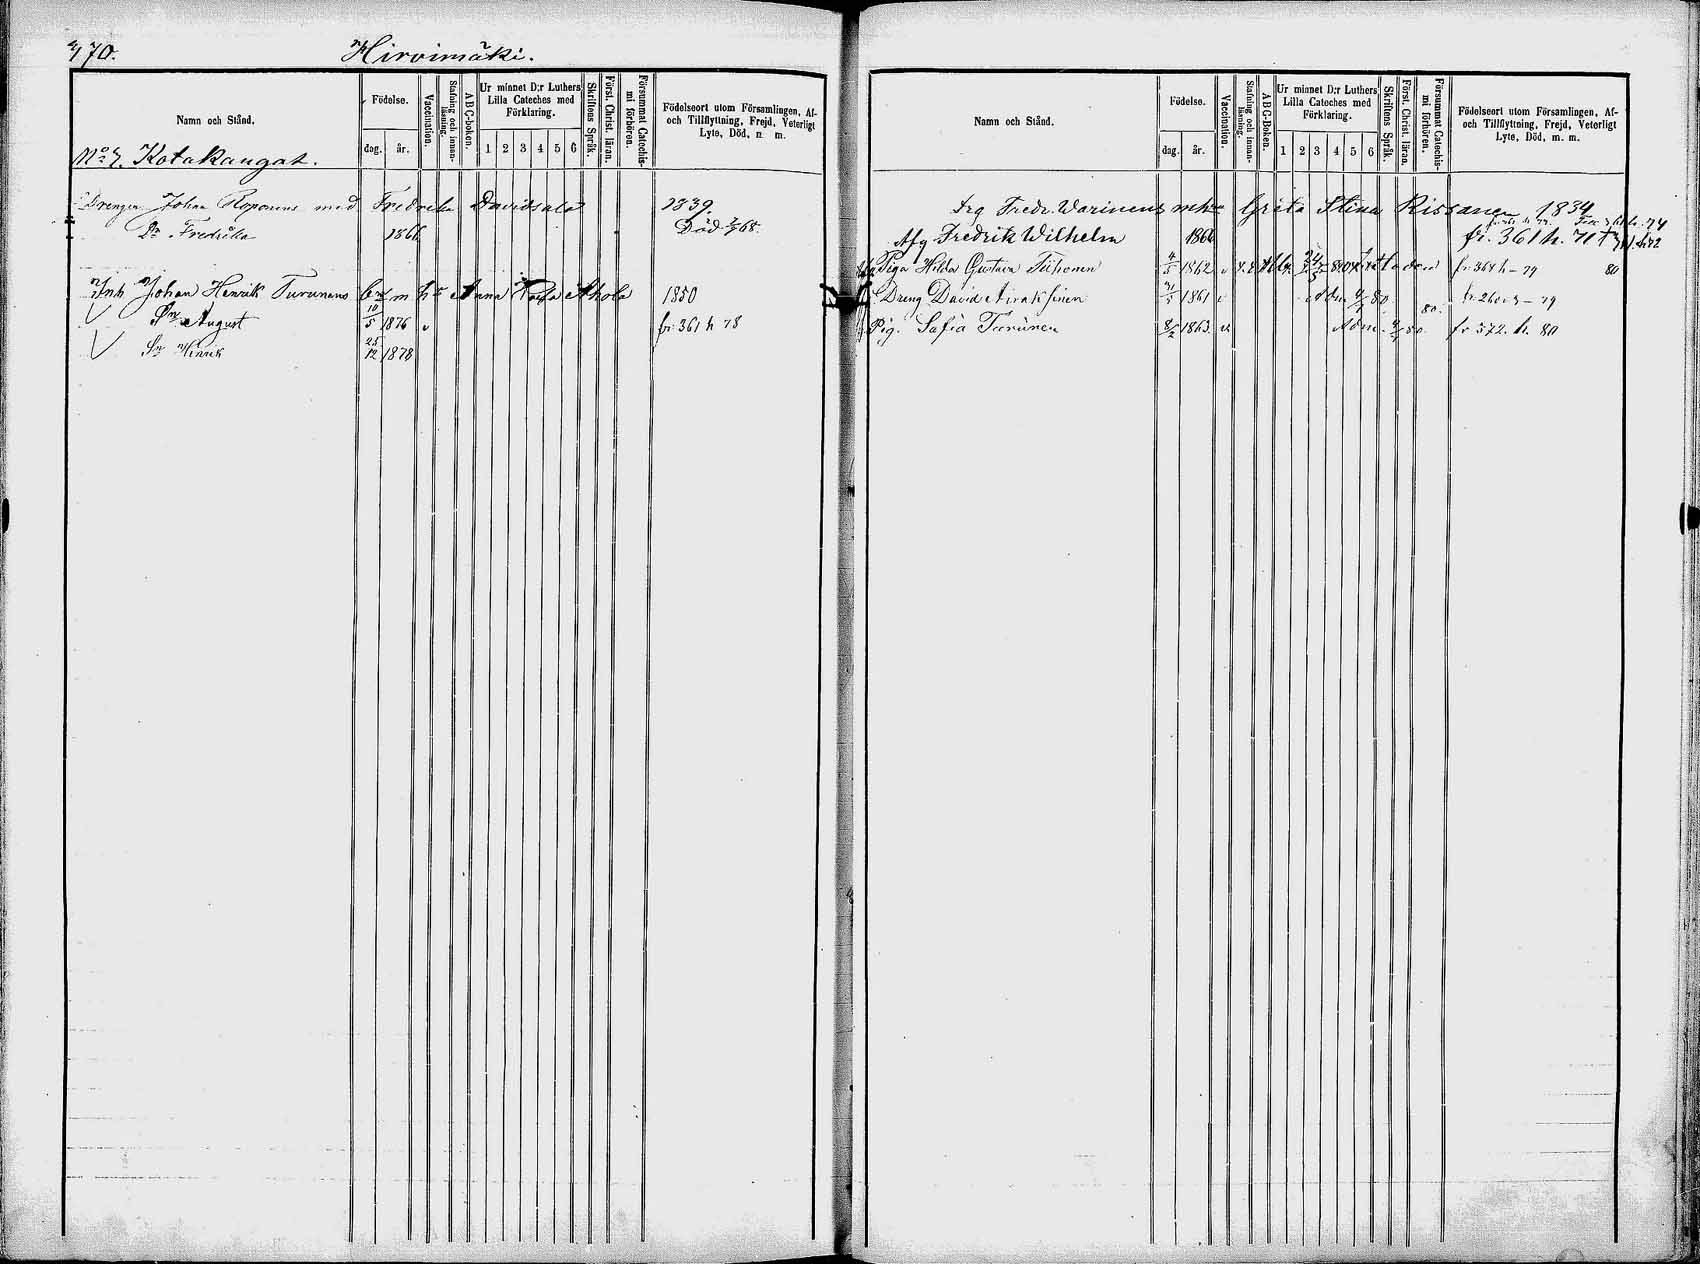 470. Hirvimäki.
Namn och Stånd.
Födelse.
dag. år.
Vaccination.
Stafning och innanläsning.
ABC-boken.
Ur minnet D:r Luthers Lilla Cateches med Förklaring.
1 2 3 4 5 6
Skriftens Språk.
Först. Christ. läran.
Försummat Catechismi förhören.
Födelseort utom Församlingen, Af- och Tillflyttning, Frejd, Veterligt Lyte, Död, m. m.
No 7. Kotakangas.
Drengen Johan Roponens med Fredrika Davidsdr 1839
Dr Fredrika 1866 Död 68.
Inh Johan Henrik Turunens m hu Anna Ahola 1850
Sn August 10/5 1876 v fr. 361 h 78
Sn Henrik 25/12 1878
Namn och Stånd.
Födelse.
dag. år.
Vaccination.
Stafning och innanläsning.
ABC-Boken.
Ur minnet D:r Luthers Lilla Cateches med Förklaring.
1 2 3 4 5 6
Skriftens Språk.
Först. Christ. läran.
Försummat Catechismi förhören.
Födelseort utom Församlingen, Af- och Tillflyttning, Frejd, Veterligt Lyte, Död, m. m.
Fredr. Warinens Grita Stina Rissanen 1834
Afg Fredrik Wilhelm 1866 fr. 361 h. 71
Piga Hilda Gustava Tiihonen 4/5 1862 v fr 364 h - 79 80
Dreng David Airaksinen 31/5 1861 v Adm 80 80. - 79
Pig. Safia Turunen 8/2 1863 v Adm. 80. fr 572. h. 80